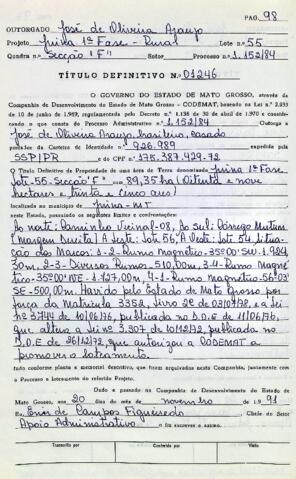 PAG. 98
OUTORGADO José de Oliveira Araujo
Projeto Juina 1ª Fase - Rural Lote n.º 55
Quadra n.º Secção "F" Setor Processo n.º 1.152/84
TÍTULO DEFINITIVO N.º 01246
O GOVERNO DO ESTADO DE MATO GROSSO, através da
Companhia de Desenvolvimento do Estado de Mato Grosso - CODEMAT, baseado na Lei n.º 2.933
de 10 de junho de 1969, regulamentada pelo Decreto n.º 1.138 de 30 de abril de 1970 e consideran-
do o que consta do Processo Administrativo n.º 1.152/84 Outorga a
José de Oliveira Araujo, brasileiro, casado
portador da Carteira de Identidade n.º 926.989 expedida pela
SSP/PR e do CPF n.º 175.387.429-72
o Título Definitivo de Propriedade de uma área de Terra denominada Juina 1ª Fase
Lote-55-Secção "F" com 89,35 ha (Oitenta e nove
hectares e trinta e cinco ares)
localizada no município de Juina-MT
neste Estado, passando os seguintes limites e confrontações:
Ao norte: Caminho Vicinal-08, Ao Sul: Córrego Mutum
(Margem Direita) A Leste: Lote 56, A Oeste: Lote 54. Situa-
ção dos Marcos: 1-2- Rumo Magnético-35º00'SW-1.924,
30m. 2-3- Diversos Rumos-510,00m. 3-4- Rumo Magné-
tico-35º00'NE-1.727,00m. 4-1- Rumo Magnético-56º03'
SE-500,00m. Havido pelo Estado de Mato Grosso por
força da Matrícula 3352, livro 2C de 03/07/78, e a Lei
nº 3744 de 10/06/76, publicada no D.O.E de 11/06/76,
que altera a Lei nº 3.307 de 10/12/72, publicada no
D.O.E de 26/12/72, que autorizou a CODEMAT a
promover o loteamento.
tudo conforme planta e memorial descritivo, que foram arquivados nesta Companhia, juntamente com
o Processo a loteamento do referido Projeto.
Dado e passado na Companhia de Desenvolvimento do Estado de
Mato Grosso, aos 20 dias do mês de novembro de 1991
Eu, Enir de Campos Figueiredo Chefe do Setor
Apoio Administrativo o fiz escrever e assino.
Transcrito por Conferido por Visto